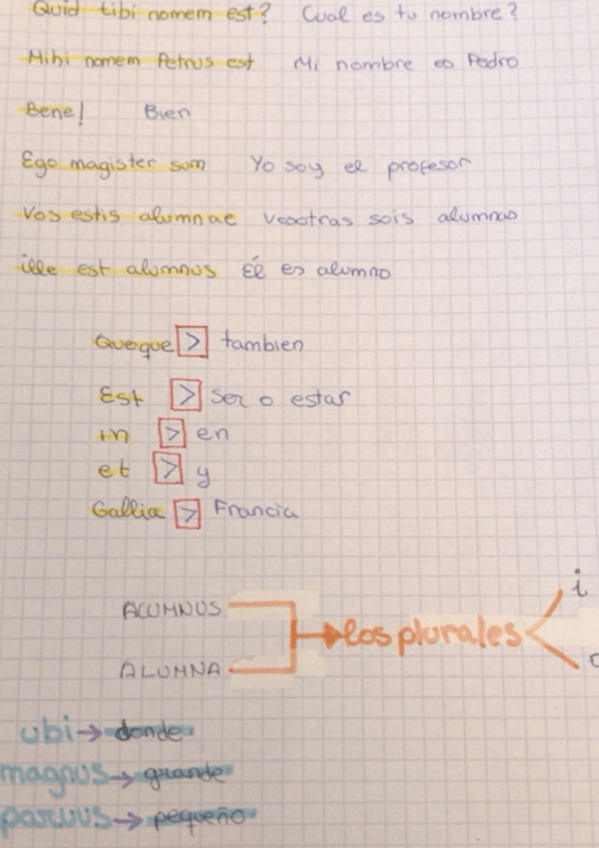 Quid tibi nomem est? Cual es tu nombre?
Mihi nomem Petrus est Mi nombre es Pedro
Bene! Bien
Ego magister sum Yo soy el profesor
Vos estis alumnae vosotras sois alumnas
ille est alumnus Él es alumno
Queque > tambien
Est > ser o estar
in > en
et > y
Gallia > Francia
ALUMNUS
ALUMNA
los plurales
i
ubi → donde
magnus → grande
parvus → pequeño